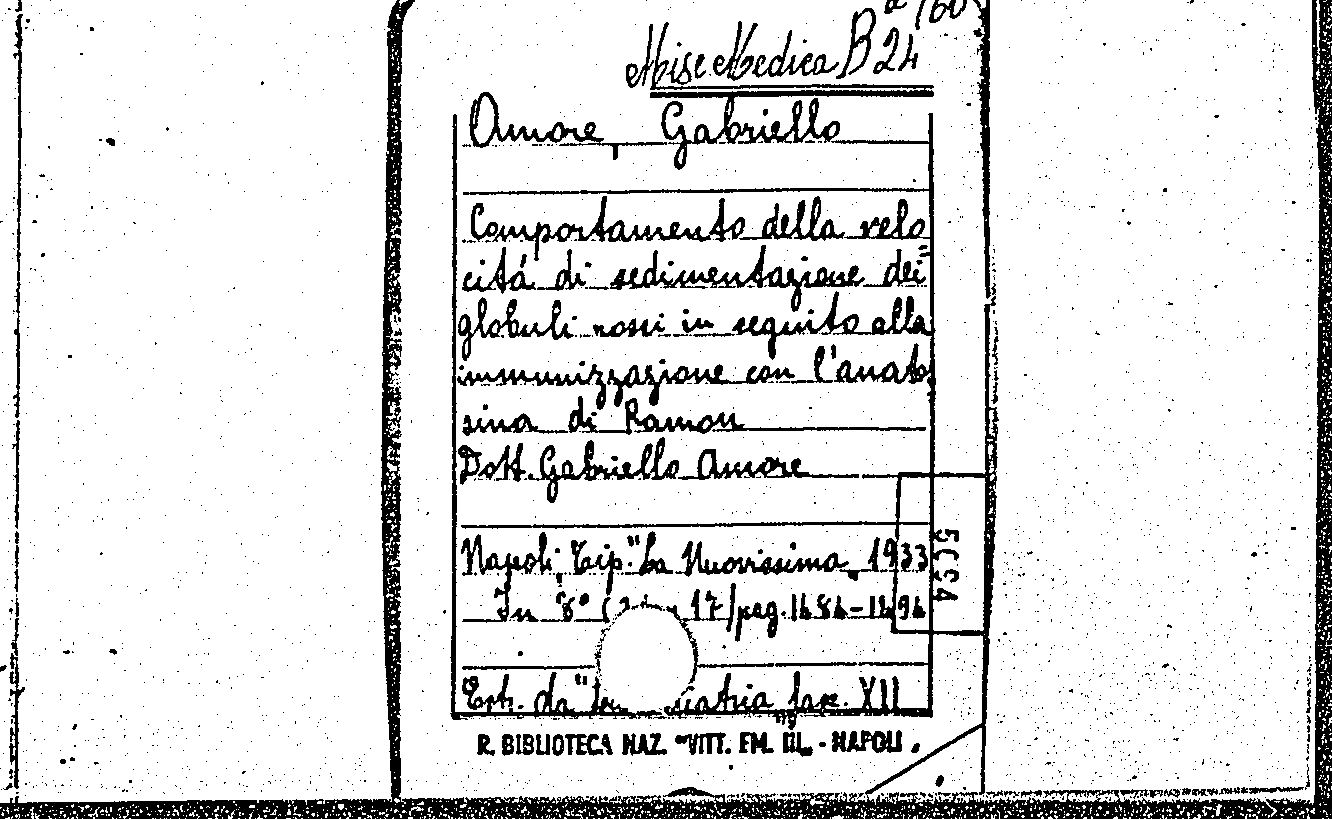 Misc Medica B 24
Amore, Gabriello
Comportamento della velo
cità di sedimentazione dei
globuli rossi in seguito alla
immunizzazione con l'anatos
sina di Ramon
Dott. Gabriello Amore
Napoli, Tip. "La Nuovissima" 1933
In 8° 17/pag. 1484-1494
Estr. da "La iatria fasc. XII
R. BIBLIOTECA NAZ. "VITT. EM. III" - NAPOLI